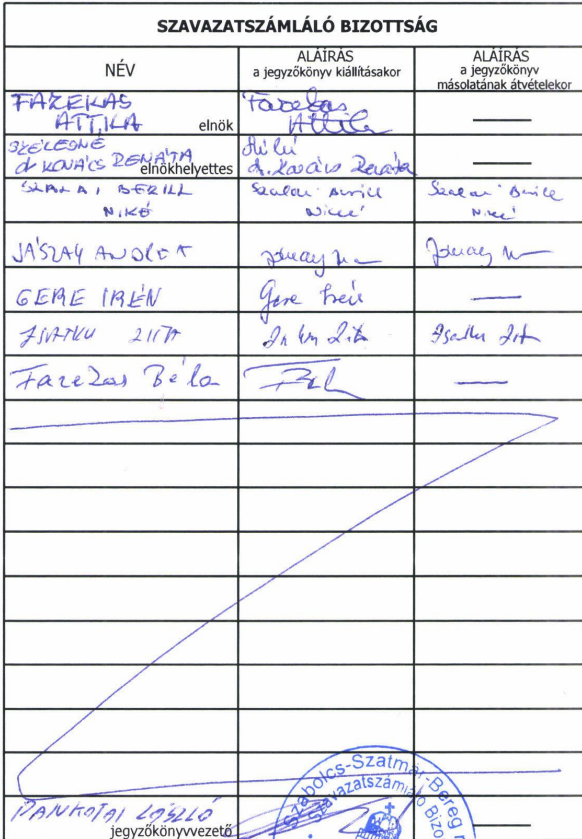 SZAVAZATSZÁMLÁLÓ BIZOTTSÁG
NÉV
ALÁÍRÁS
a jegyzőkönyv kiállításakor
ALÁÍRÁS
a jegyzőkönyv
másolatának átvételekor
FAZEKAS
ATTILA elnök
Fazekas
Attila
—
SZÉLESNÉ
dr KOVÁCS RENÁTA elnökhelyettes
dr. Kovács Renáta
—
SZALAI BERILL
NIKÉ
Szalai Berill
Niké
Szalai Berill
Niké
JÁSZAY ANDREA
GERE IRÉN
Gere Irén
—
ZSATKU ZITA
Zita
Zsatku Zita
Fazekas Béla
—
PANKOTAI LÁSZLÓ
jegyzőkönyvvezető
—
Szabolcs-Szatmár-Bereg
Szavazatszámláló Bizo